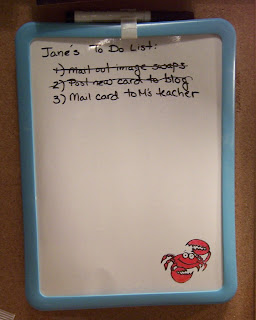 Jane's To Do List:
1) Mail out image swaps
2) Post new card to blog
3) Mail card to M's teacher